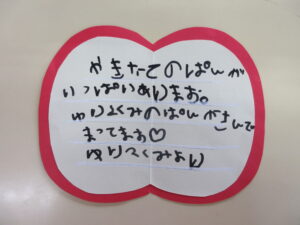 やきたてのぱんが
いっぱいありまお。
ゆりぐみのぱんやさんで
まってまお♡
ゆりぐみより